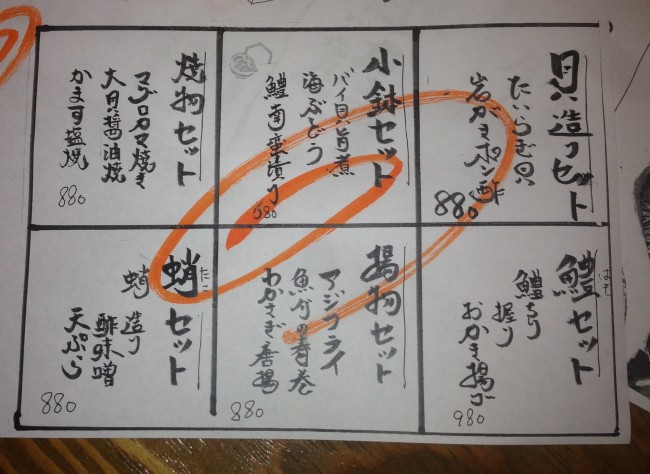 貝造りセット
たいらぎ貝
岩がきポン酢
880
小鉢セット
バイ貝旨煮
海ぶどう
鱧南蛮漬け
580
焼物セット
マグロカマ焼き
大貝醤油焼
かます塩焼
880
鱧セット
はも
鱧ちり
握り
おかき揚げ
980
揚物セット
アジフライ
魚竹の春巻
わかさぎ唐揚
880
蛸セット
たこ
蛸
造り
酢味噌
天ぷら
880